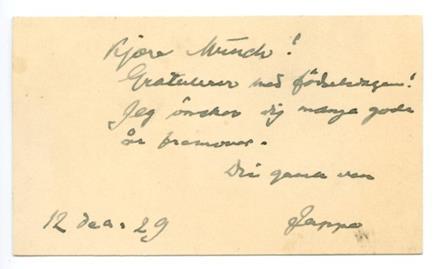 Kjære Munch!
Gratulerer med födselsdagen!
Jeg önsker dig mange gode
år fremover.
Din gamle ven
12 des. 29 Jappe